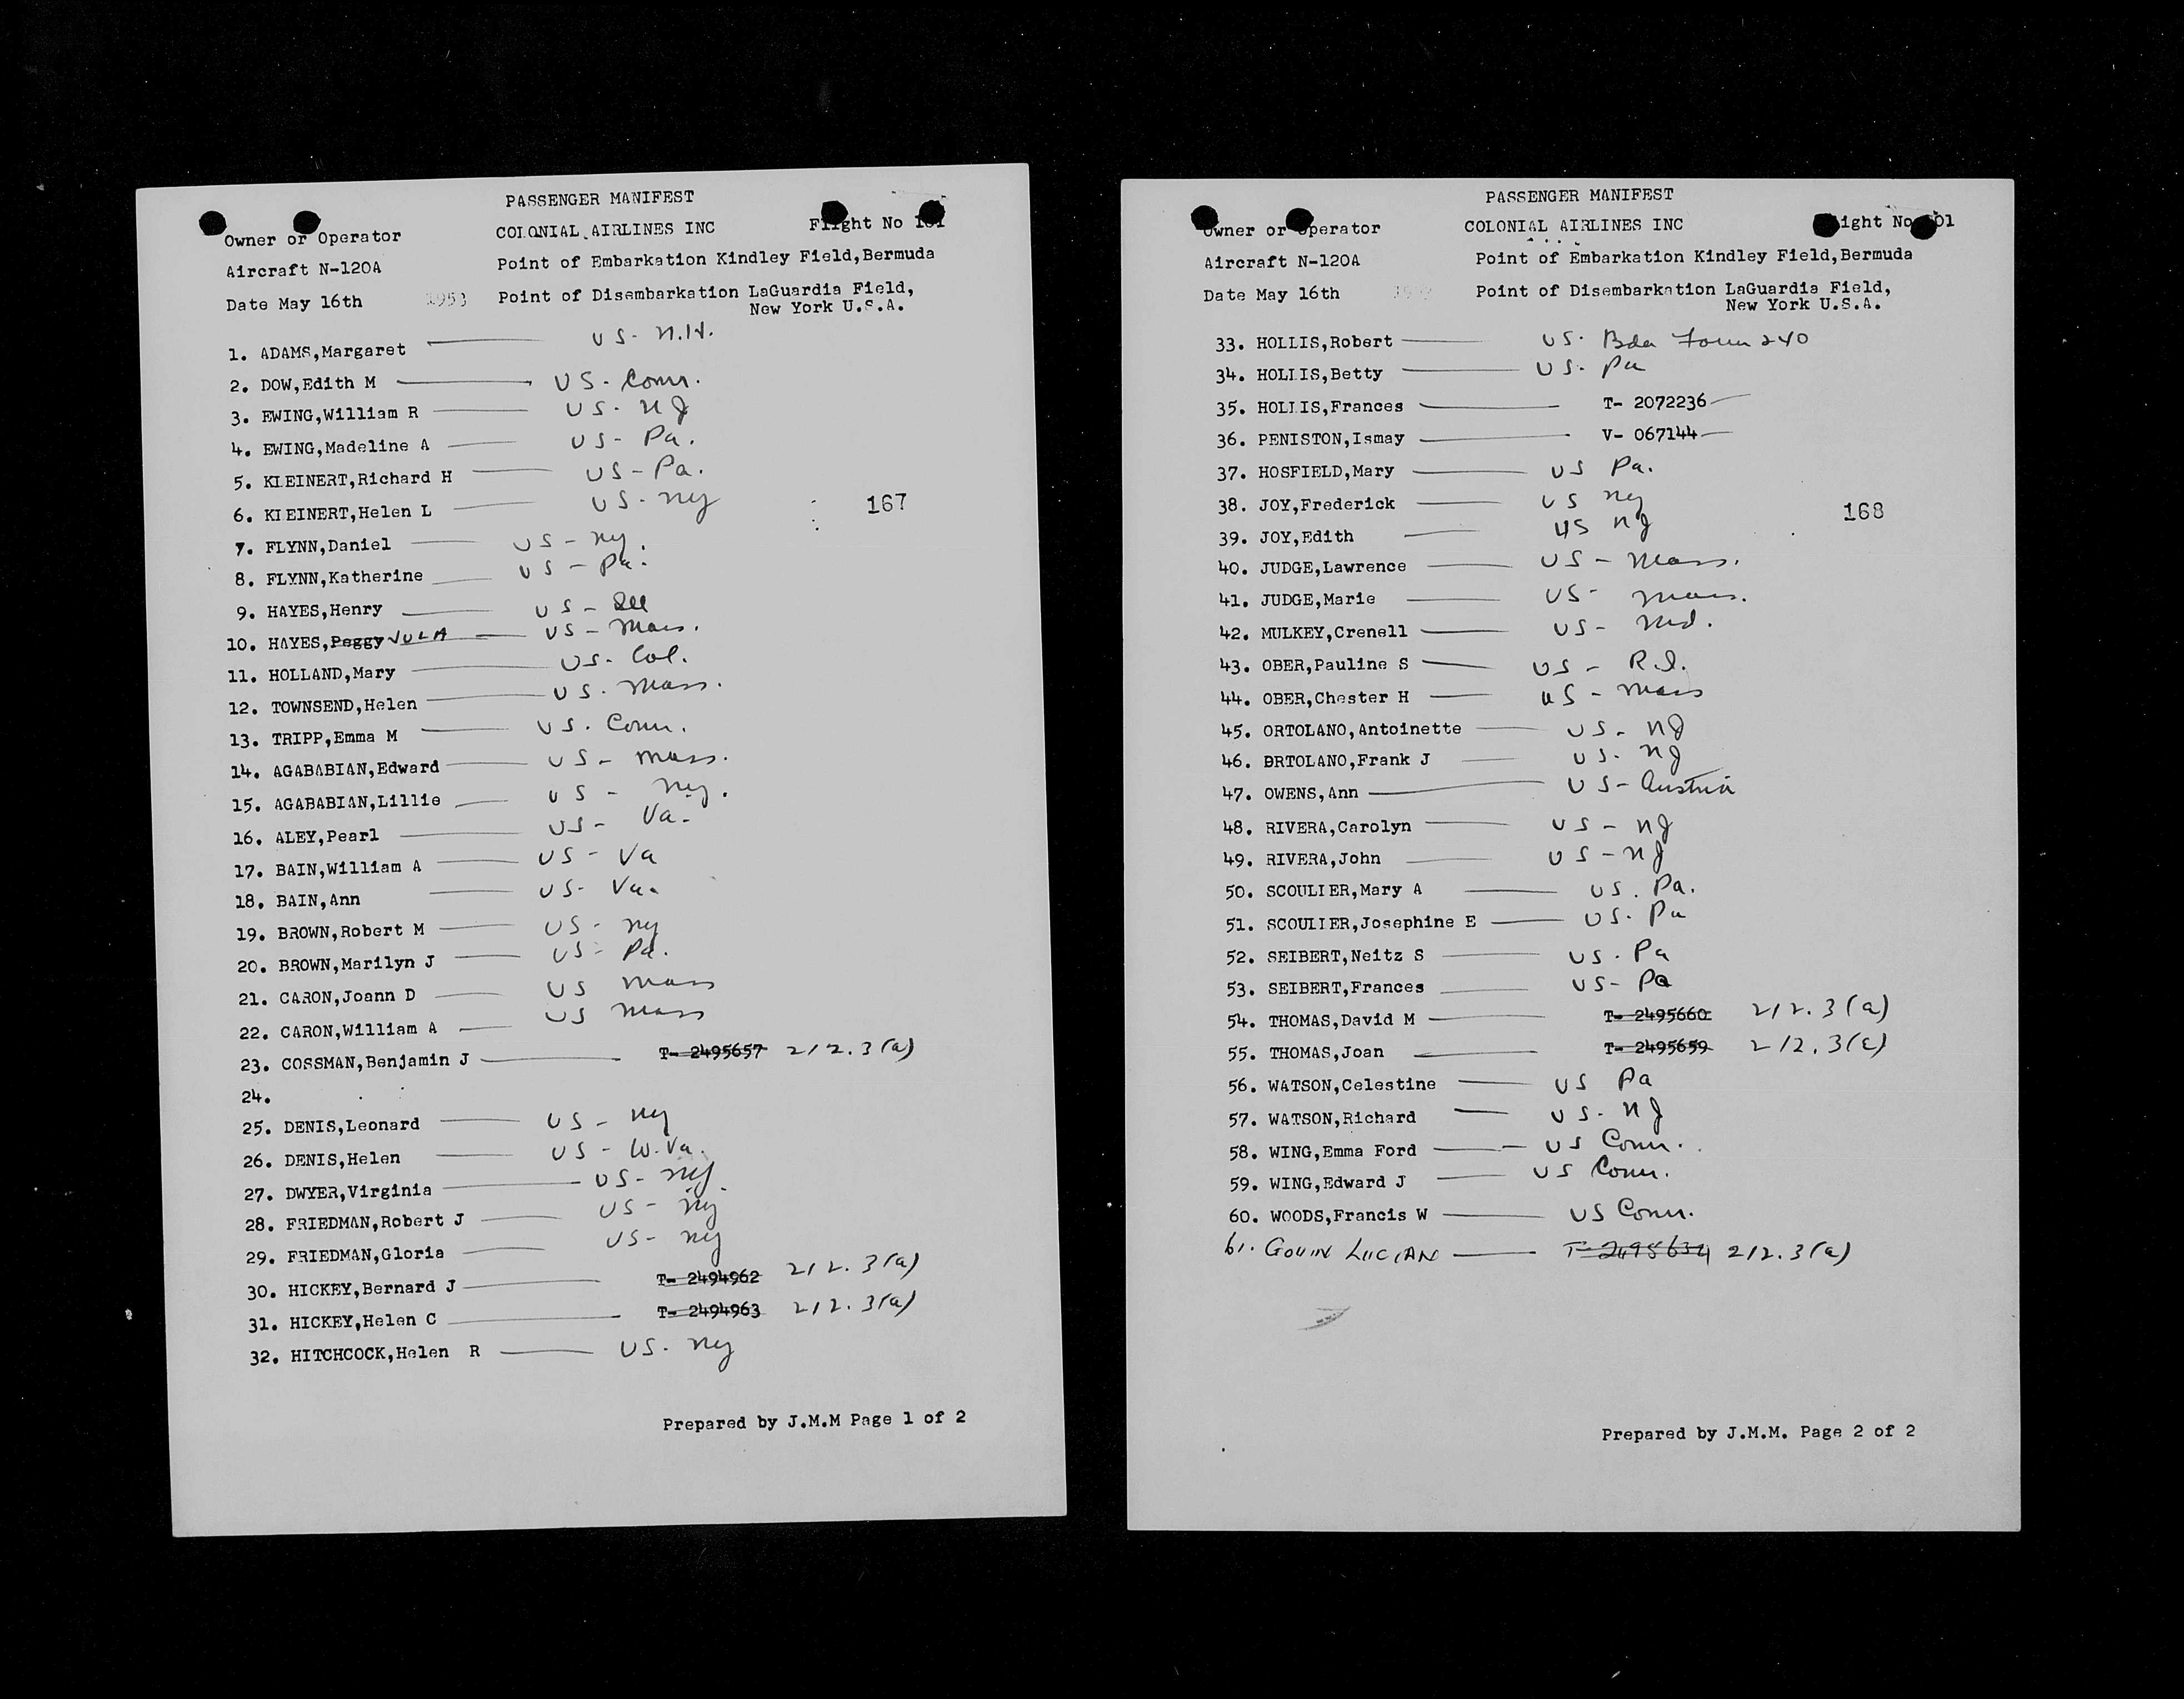 PASSENGER MANIFEST
Owner or Operator COLONIAL AIRLINES INC Flight No 101
Aircraft N-120A Point of Embarkation Kindley Field,Bermuda
Date May 16th 1953 Point of Disembarkation LaGuardia Field,
New York U.S.A.
1. ADAMS,Margaret US - N.H.
2. DOW,Edith M US - Conn.
3. EWING,William R US - NJ
4. EWING,Madeline A US - Pa.
5. KLEINERT,Richard H US - Pa.
6. KLEINERT,Helen L US - NY 167
7. FLYNN,Daniel US - NY
8. FLYNN,Katherine US - Pa.
9. HAYES,Henry US - Ill
10. HAYES,Peggy JULA US - Mass.
11. HOLLAND,Mary US - Col.
12. TOWNSEND,Helen US. Mass.
13. TRIPP,Emma M US. Conn.
14. AGABABIAN,Edward US - Mass.
15. AGABABIAN,Lillie US - NY.
16. ALEY,Pearl US - Va.
17. BAIN,William A US - Va
18. BAIN,Ann US - Va.
19. BROWN,Robert M US - NY
20. BROWN,Marilyn J US - Pa.
21. CARON,Joann D US Mass
22. CARON,William A US Mass
23. COSSMAN,Benjamin J T- 2495657 212.3(a)
24.
25. DENIS,Leonard US - NY
26. DENIS,Helen US - W.Va.
27. DWYER,Virginia US - NY
28. FRIEDMAN,Robert J US - NY
29. FRIEDMAN,Gloria US - NY
30. HICKEY,Bernard J T- 2494962 212.3(a)
31. HICKEY,Helen C T- 2494963 212.3(a)
32. HITCHCOCK,Helen R US. NY
Prepared by J.M.M Page 1 of 2
PASSENGER MANIFEST
Owner or Operator COLONIAL AIRLINES INC Flight No 101
Aircraft N-120A Point of Embarkation Kindley Field,Bermuda
Date May 16th Point of Disembarkation LaGuardia Field,
New York U.S.A.
33. HOLLIS,Robert US. Bda Form 240
34. HOLLIS,Betty US. Pa
35. HOLLIS,Frances T- 2072236
36. PENISTON,Ismay V- 067144
37. HOSFIELD,Mary US Pa.
38. JOY,Frederick US NY
39. JOY,Edith US NJ 168
40. JUDGE,Lawrence US - Mass.
41. JUDGE,Marie US - Mass.
42. MULKEY,Crenell US - Md.
43. OBER,Pauline S US - R.I.
44. OBER,Chester H US - Mass
45. ORTOLANO,Antoinette US - NJ
46. BRTOLANO,Frank J US. NJ
47. OWENS,Ann US - Austria
48. RIVERA,Carolyn US - NJ
49. RIVERA,John US - NJ
50. SCOULIER,Mary A US. Pa.
51. SCOULIER,Josephine E US. Pa
52. SEIBERT,Neitz S US. Pa
53. SEIBERT,Frances US - Pa
54. THOMAS,David M T- 2495660 212.3(a)
55. THOMAS,Joan T- 2495659 212.3(a)
56. WATSON,Celestine US Pa
57. WATSON,Richard US. NJ
58. WING,Emma Ford US Conn.
59. WING,Edward J US Conn.
60. WOODS,Francis W US Conn.
61. GOUIN LUCIAN 212.3(a)
Prepared by J.M.M. Page 2 of 2